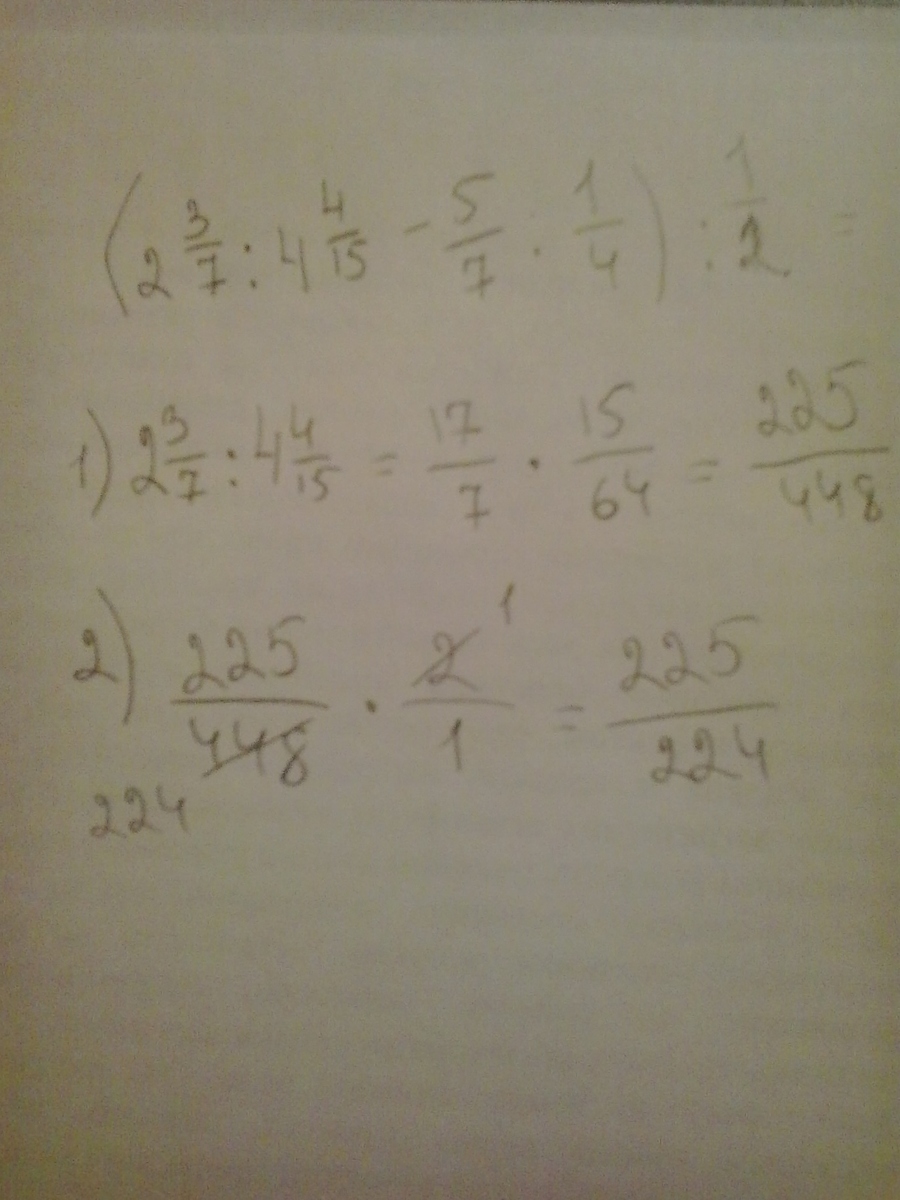 (2 3/7 : 4 4/15 - 5/7 · 1/4) : 1/2 =
1) 2 3/7 : 4 4/15 = 17/7 · 15/64 = 225/448
2) 225/448 · 2/1 1 = 225/224
224